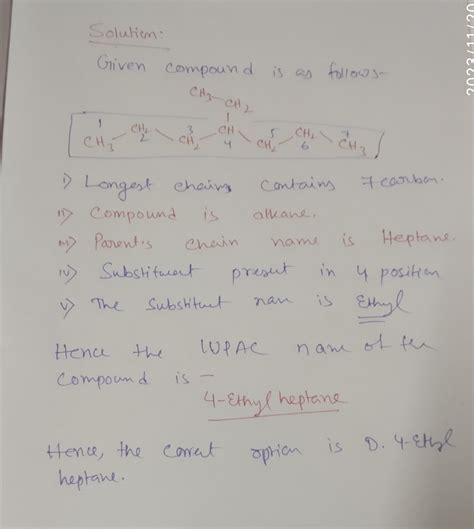 2023/11/20
Solution:
Given compound is as follows-
CH3 CH2
1 3 CH 5 7
CH3 CH2 CH2 4 CH2 CH2 CH3
2 6
i) Longest chains contains 7 carbon.
ii) Compound is alkane.
iii) Parent's chain name is Heptane.
iv) Substituent present in 4 position
v) The Substitut nam is Ethyl
Hence the IUPAC name of
Compound is -
4-Ethyl heptane
Hence, the correct option is D. 4-Ethyl
heptane.